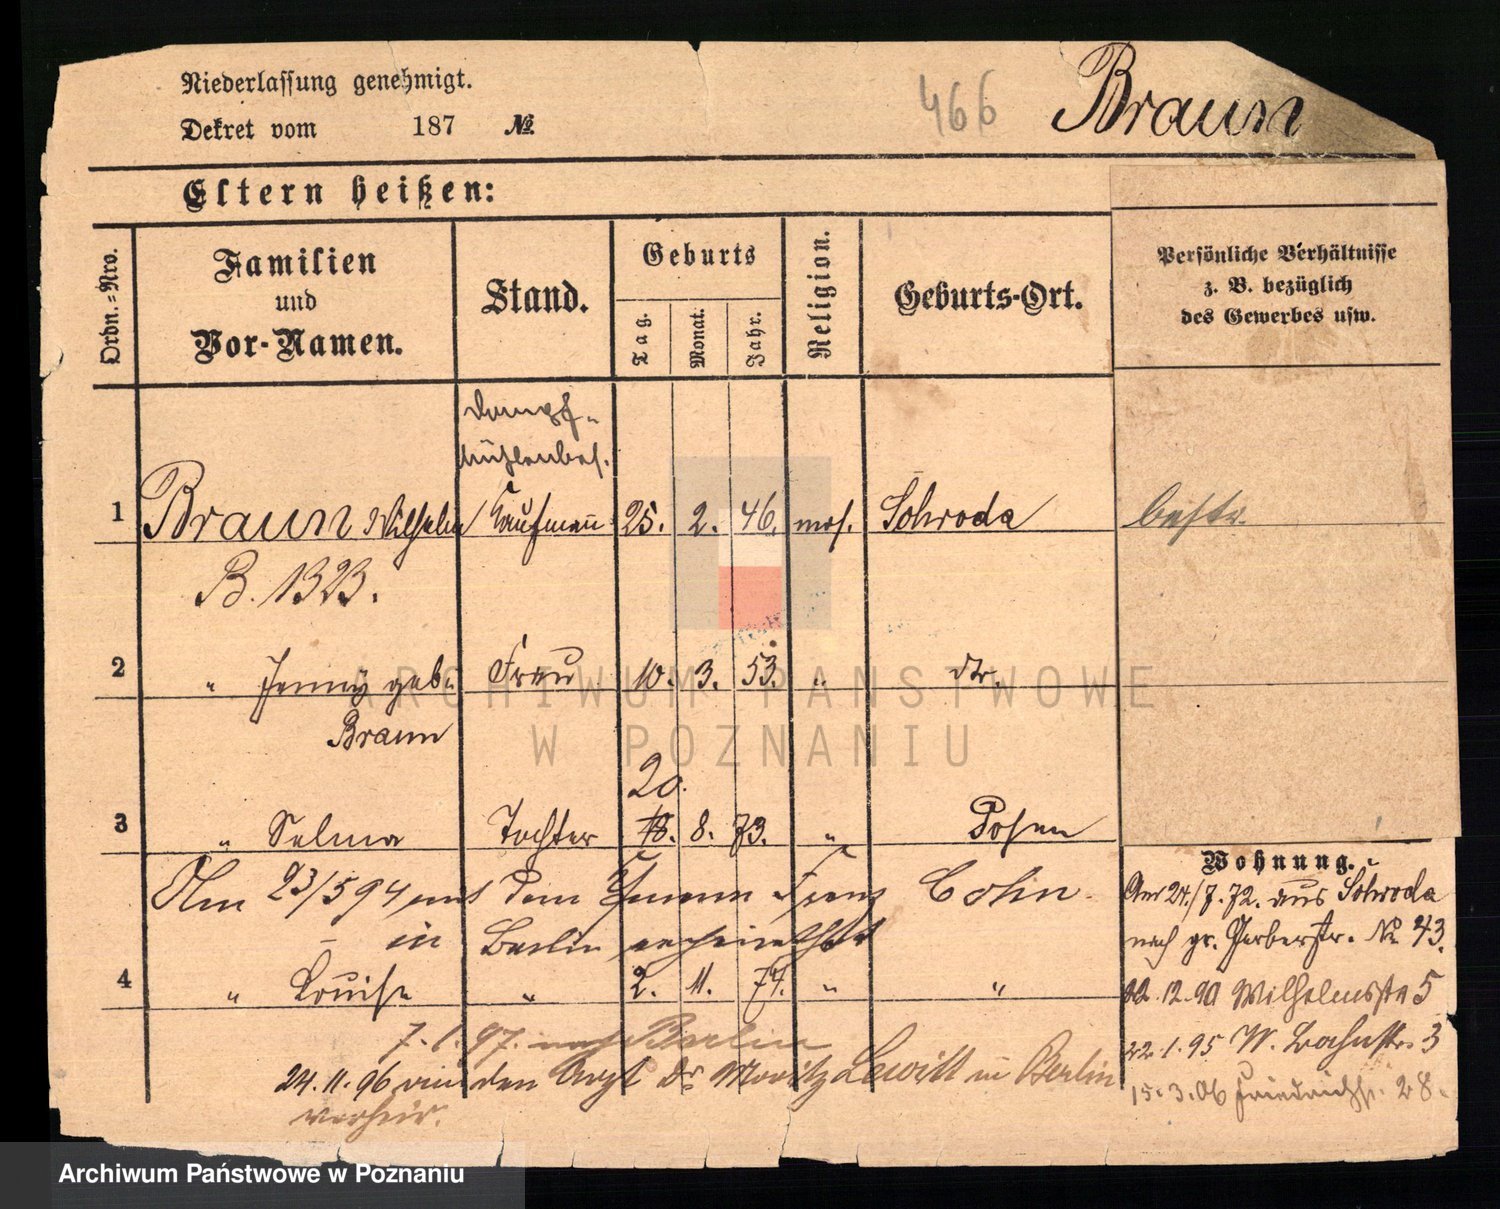 Niederlassung genehmigt.
466
Braun
Dekret vom 187 №
Eltern heißen:
Ordn.-Nro.
Familien
und
Vor-Namen.
Stand.
Geburts
Tag.
Monat.
Jahr.
Religion.
Geburts-Ort.
Persönliche Verhältnisse
z. B. bezüglich
des Gewerbes usw.
Dampf-
mühlenbes.
1 Braun Wilhelm Kaufmann 25. 2. 46. mos. Schroda
B. 1323.
2 " Jenny geb. Frau 10. 3. 53. " dto.
Braun
20.
3 " Selma Tochter 18. 8. 73. " Posen
Am 23/5 94 mit dem Franz Cohn
in Berlin verheirathet
4 " Louise " 2. 11. 74. " "
7. 1. 97. nach Berlin
24. 11. 96 mit den Arzt Dr. Moritz Lewitt in Berlin
verheir.
Wohnung.
Am 24./7. 72. aus Schroda
nach gr. Gerberstr. No 43.
22. 12. 90 Wilhelmsstr 5
22. 1. 95 W. 3
15. 3. 06 Friedrichstr. 28.
ARCHIWUM PAŃSTWOWE
W POZNANIU
Archiwum Państwowe w Poznaniu